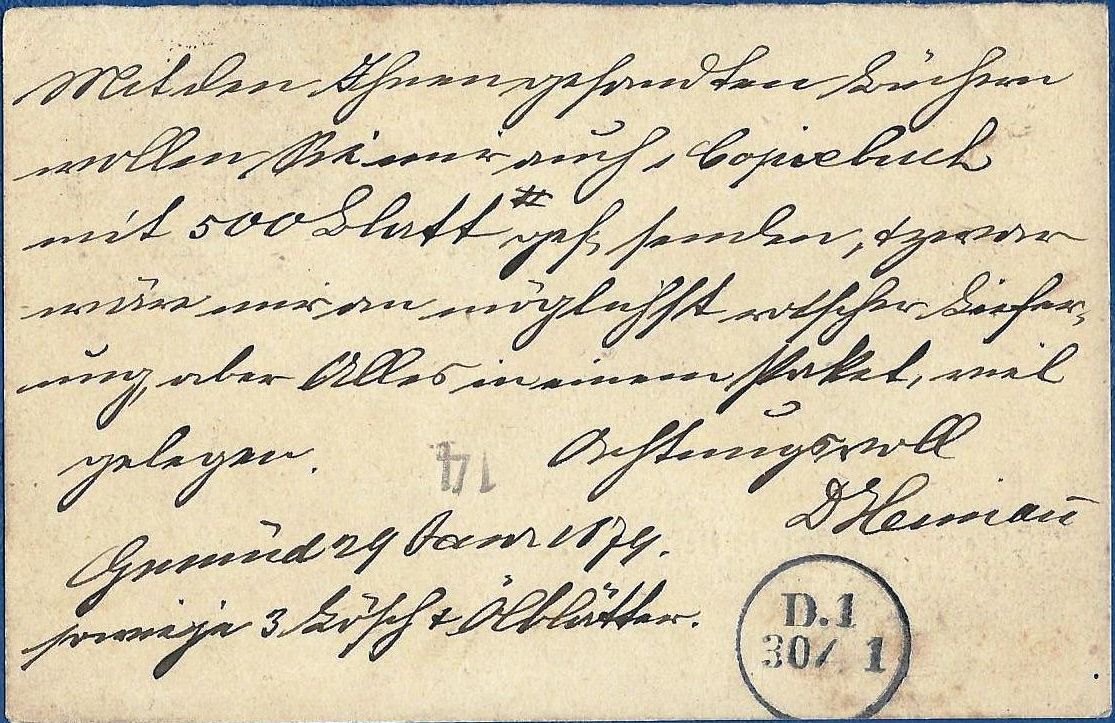 Mit den Ihnen gesandten Büchern
wollen Sie mir auch 1 Copiebuch
mit 500 Blatt # gefl. senden, & zwar
wäre mir an möglichst rascher Liefer-
ung, aber Alles in einem Paket, viel
gelegen.
14
Achtungsvoll
Gmünd 29 Janr 1879.
sowie je 3 Lösch & Ölblätter.
D.1
30/ 1